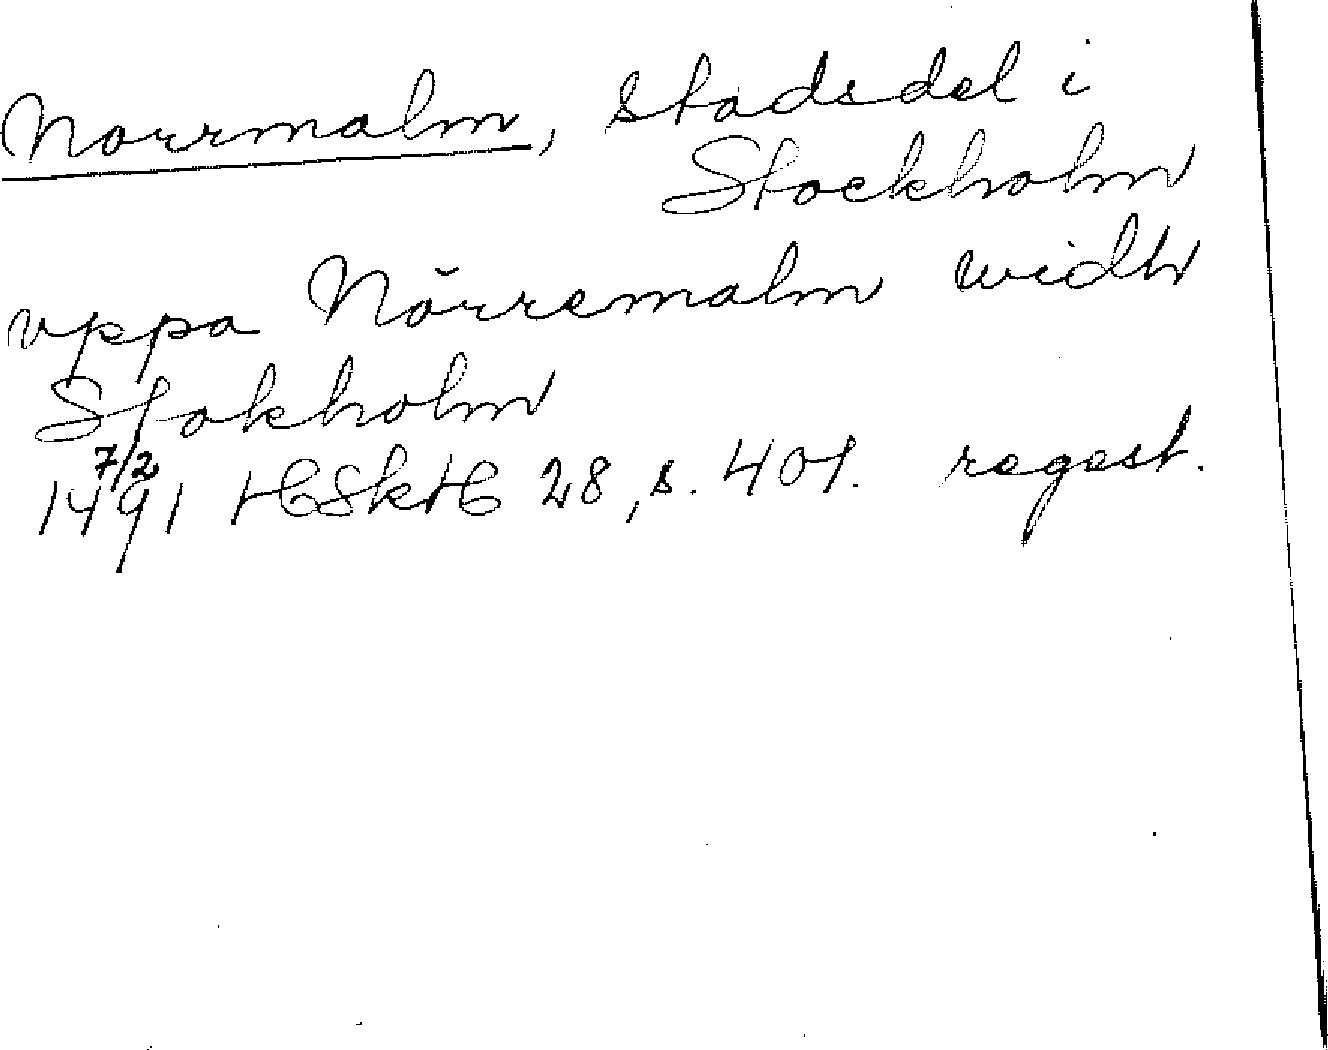 Norrmalm, stadsdel i
Stockholm
vppa Nörremalm widh
Stokholm
7/2
1491 HSkH 28, s. 401. regest.